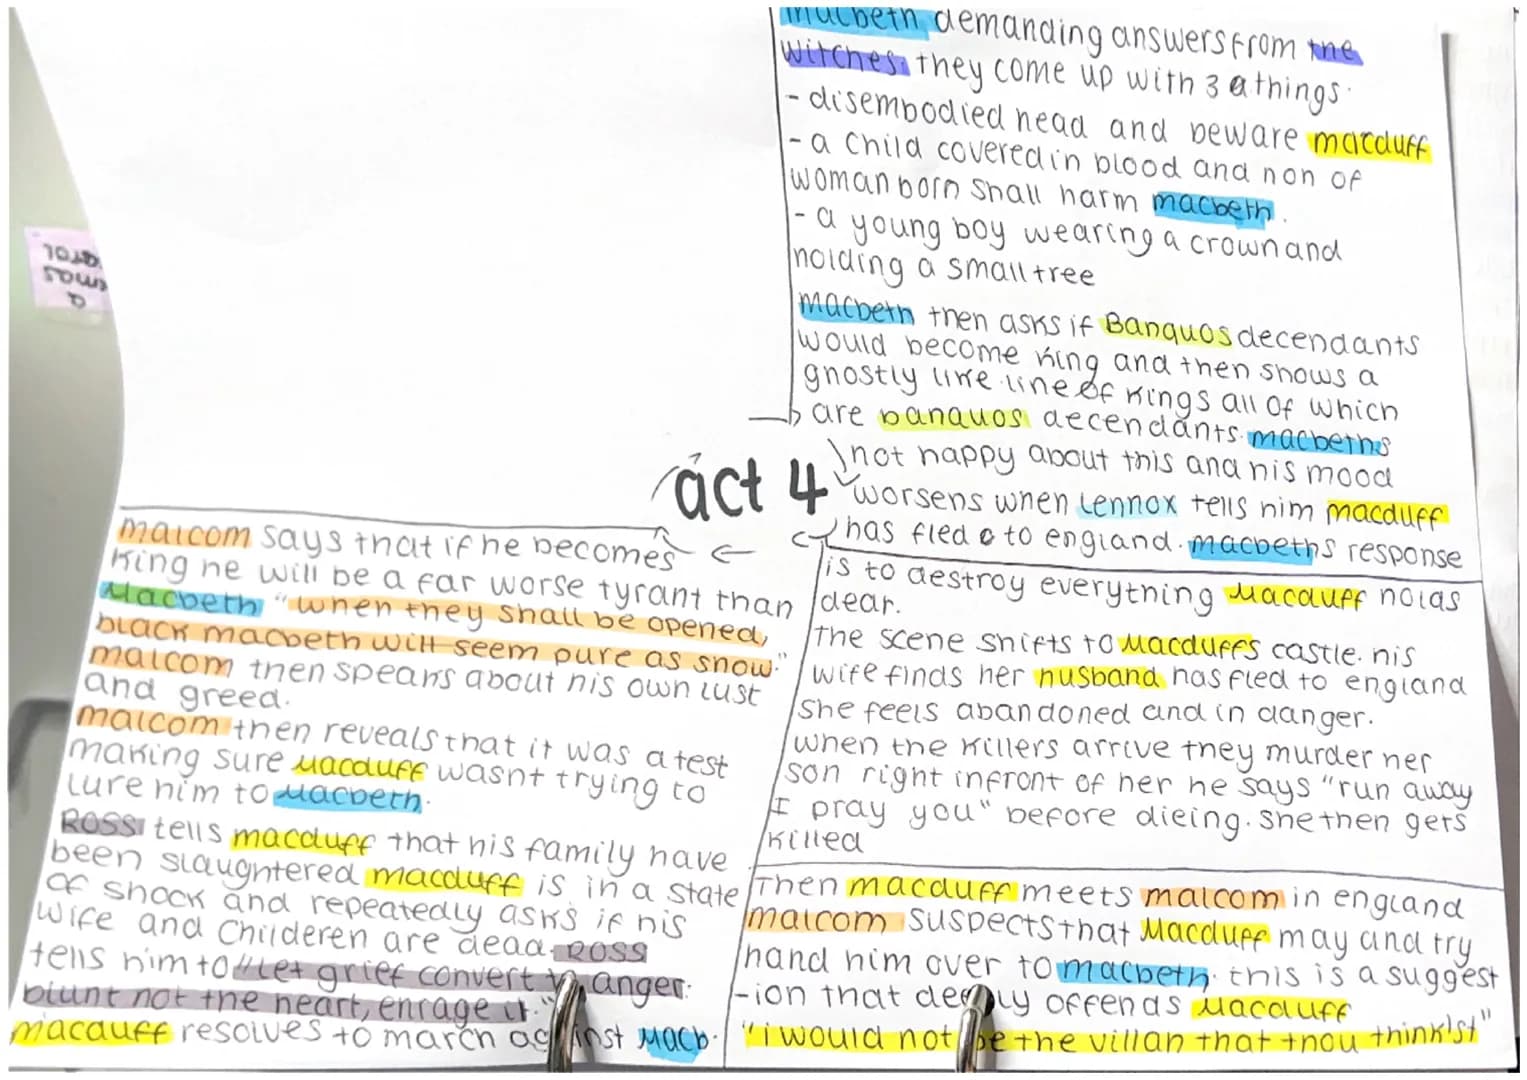 macbeth demanding answers from the
witches. they come up with 3 things.
- disembodied head and beware macduff
- a child covered in blood and non of
woman born shall harm macbeth.
- a young boy wearing a crown and
holding a small tree
macbeth then asks if Banquos decendants
would become king and then shows a
ghostly like line of kings all of which
are banquos decendants. macbeths
not happy about this and his mood
worsens when Lennox tells him macduff
has fled to england. macbeths response
is to destroy everything Macduff holds
dear.
the scene shifts to Macduffs castle. his
wife finds her husband has fled to england
she feels abandoned and in danger.
when the killers arrive they murder her
son right infront of her he says "run away
I pray you" before dieing. she then gets
killed
Then macduff meets malcom in england
malcom suspects that Macduff may and try
hand him over to macbeth. this is a suggest
-ion that deeply offends Macduff
"i would not be the villan that thou think'st"
act 4
malcom says that if he becomes
king he will be a far worse tyrant than
Macbeth "when they shall be opened,
black macbeth will seem pure as snow."
malcom then spears about his own lust
and greed.
malcom then reveals that it was a test
making sure Macduff wasnt trying to
lure him to Macbeth.
Ross tells macduff that his family have
been slaughtered macduff is in a state
of shock and repeatedly asks if his
wife and Childeren are dead. Ross
tells him to "Let grief convert to anger:
blunt not the heart, enrage it."
macduff resolves to march against Macb.
a